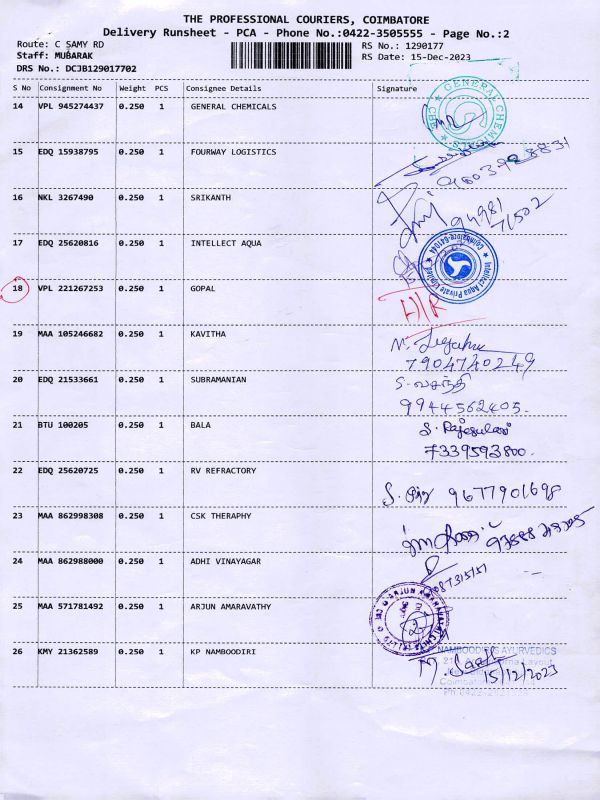 THE PROFESSIONAL COURIERS, COIMBATORE
Delivery Runsheet - PCA - Phone No.:0422-3505555 - Page No.:2
Route: C SAMY RD
RS No.: 1290177
Staff: MUBARAK
RS Date: 15-Dec-2023
DRS No.: DCJB129017702
S No Consignment No Weight PCS Consignee Details Signature
14 VPL 945274437 0.250 1 GENERAL CHEMICALS
GENERAL CHEMIC
CBE
15 EDQ 15938795 0.250 1 FOURWAY LOGISTICS
16 NKL 3267490 0.250 1 SRIKANTH
94981
71502
17 EDQ 25620816 0.250 1 INTELLECT AQUA
Intellect Aqua Private Limited
Coimbatore-641044
18 VPL 221267253 0.250 1 GOPAL
19 MAA 105246682 0.250 1 KAVITHA
7904740249
20 EDQ 21533661 0.250 1 SUBRAMANIAN
S. வசந்தி
9944562405.
21 BTU 100205 0.250 1 BALA
7339593800.
22 EDQ 25620725 0.250 1 RV REFRACTORY
9677901698
23 MAA 862998308 0.250 1 CSK THERAPHY
24 MAA 862988000 0.250 1 ADHI VINAYAGAR
25 MAA 571781492 0.250 1 ARJUN AMARAVATHY
26 KMY 21362589 0.250 1 KP NAMBOODIRI
NAMBOODIRIS AYURVEDICS
15/12/2023